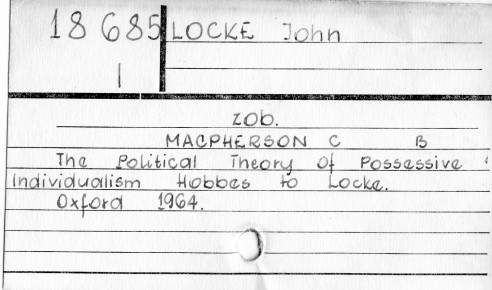 18 685 LOCKE John
I
zob.
MACPHERSON C B
The Political Theory of Possessive
Individualism Hobbes to Locke.
Oxford 1964.